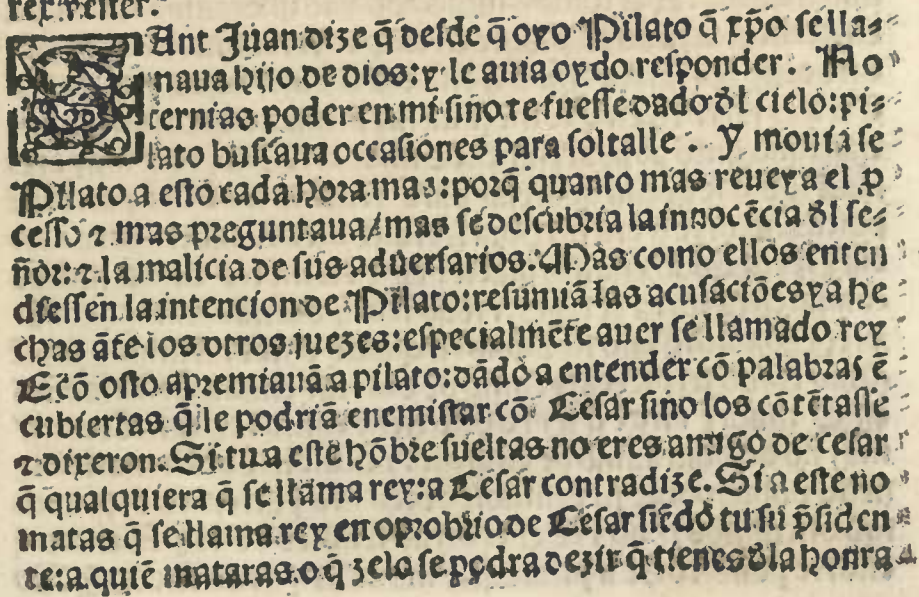 rey reſter.
SAnt Juan dize q̄ deſde q̄ oyo Pilato q̄ xp̄o ſe lla⸗
maua hijo de dios: y le auia oydo reſponder. No
ternias poder en mi ſino te fueſſe dado d̄l cielo: pi⸗
lato buſcaua occaſiones para ſoltalle: y mouia ſe
Pilato a eſto cada hora mas: porq̄ quanto mas reueya el ꝓ
ceſſo ⁊ mas preguntaua/ mas ſe deſcubria la innocēcia d̄l ſe⸗
ñor: ⁊ la malicia de ſus aduerſarios. Mas como ellos enten
dieſſen la intencion de Pilato: reſumiā las acuſaciōes ya he
chas āte los otros juezes: eſpecialmēte auer ſe llamado rey
E cō eſto apremiauā a pilato: dādo a entender cō palabras ē
cubiertas q̄ le podriā enemiſtar cō Ceſar ſino los cōtētaſſe
⁊ dixeron. Si tu a eſte hōbre ſueltas no eres amigo de ceſar
q̄ qualquiera q̄ ſe llama rey: a Ceſar contradize. Si a eſte no
matas q̄ ſe llama rey en oprobrio de Ceſar ſiēdo tu ſu p̄ſiden
te: a quiē mataras o q̄ zelo ſe podra dezir q̄ tienes d̄la honra